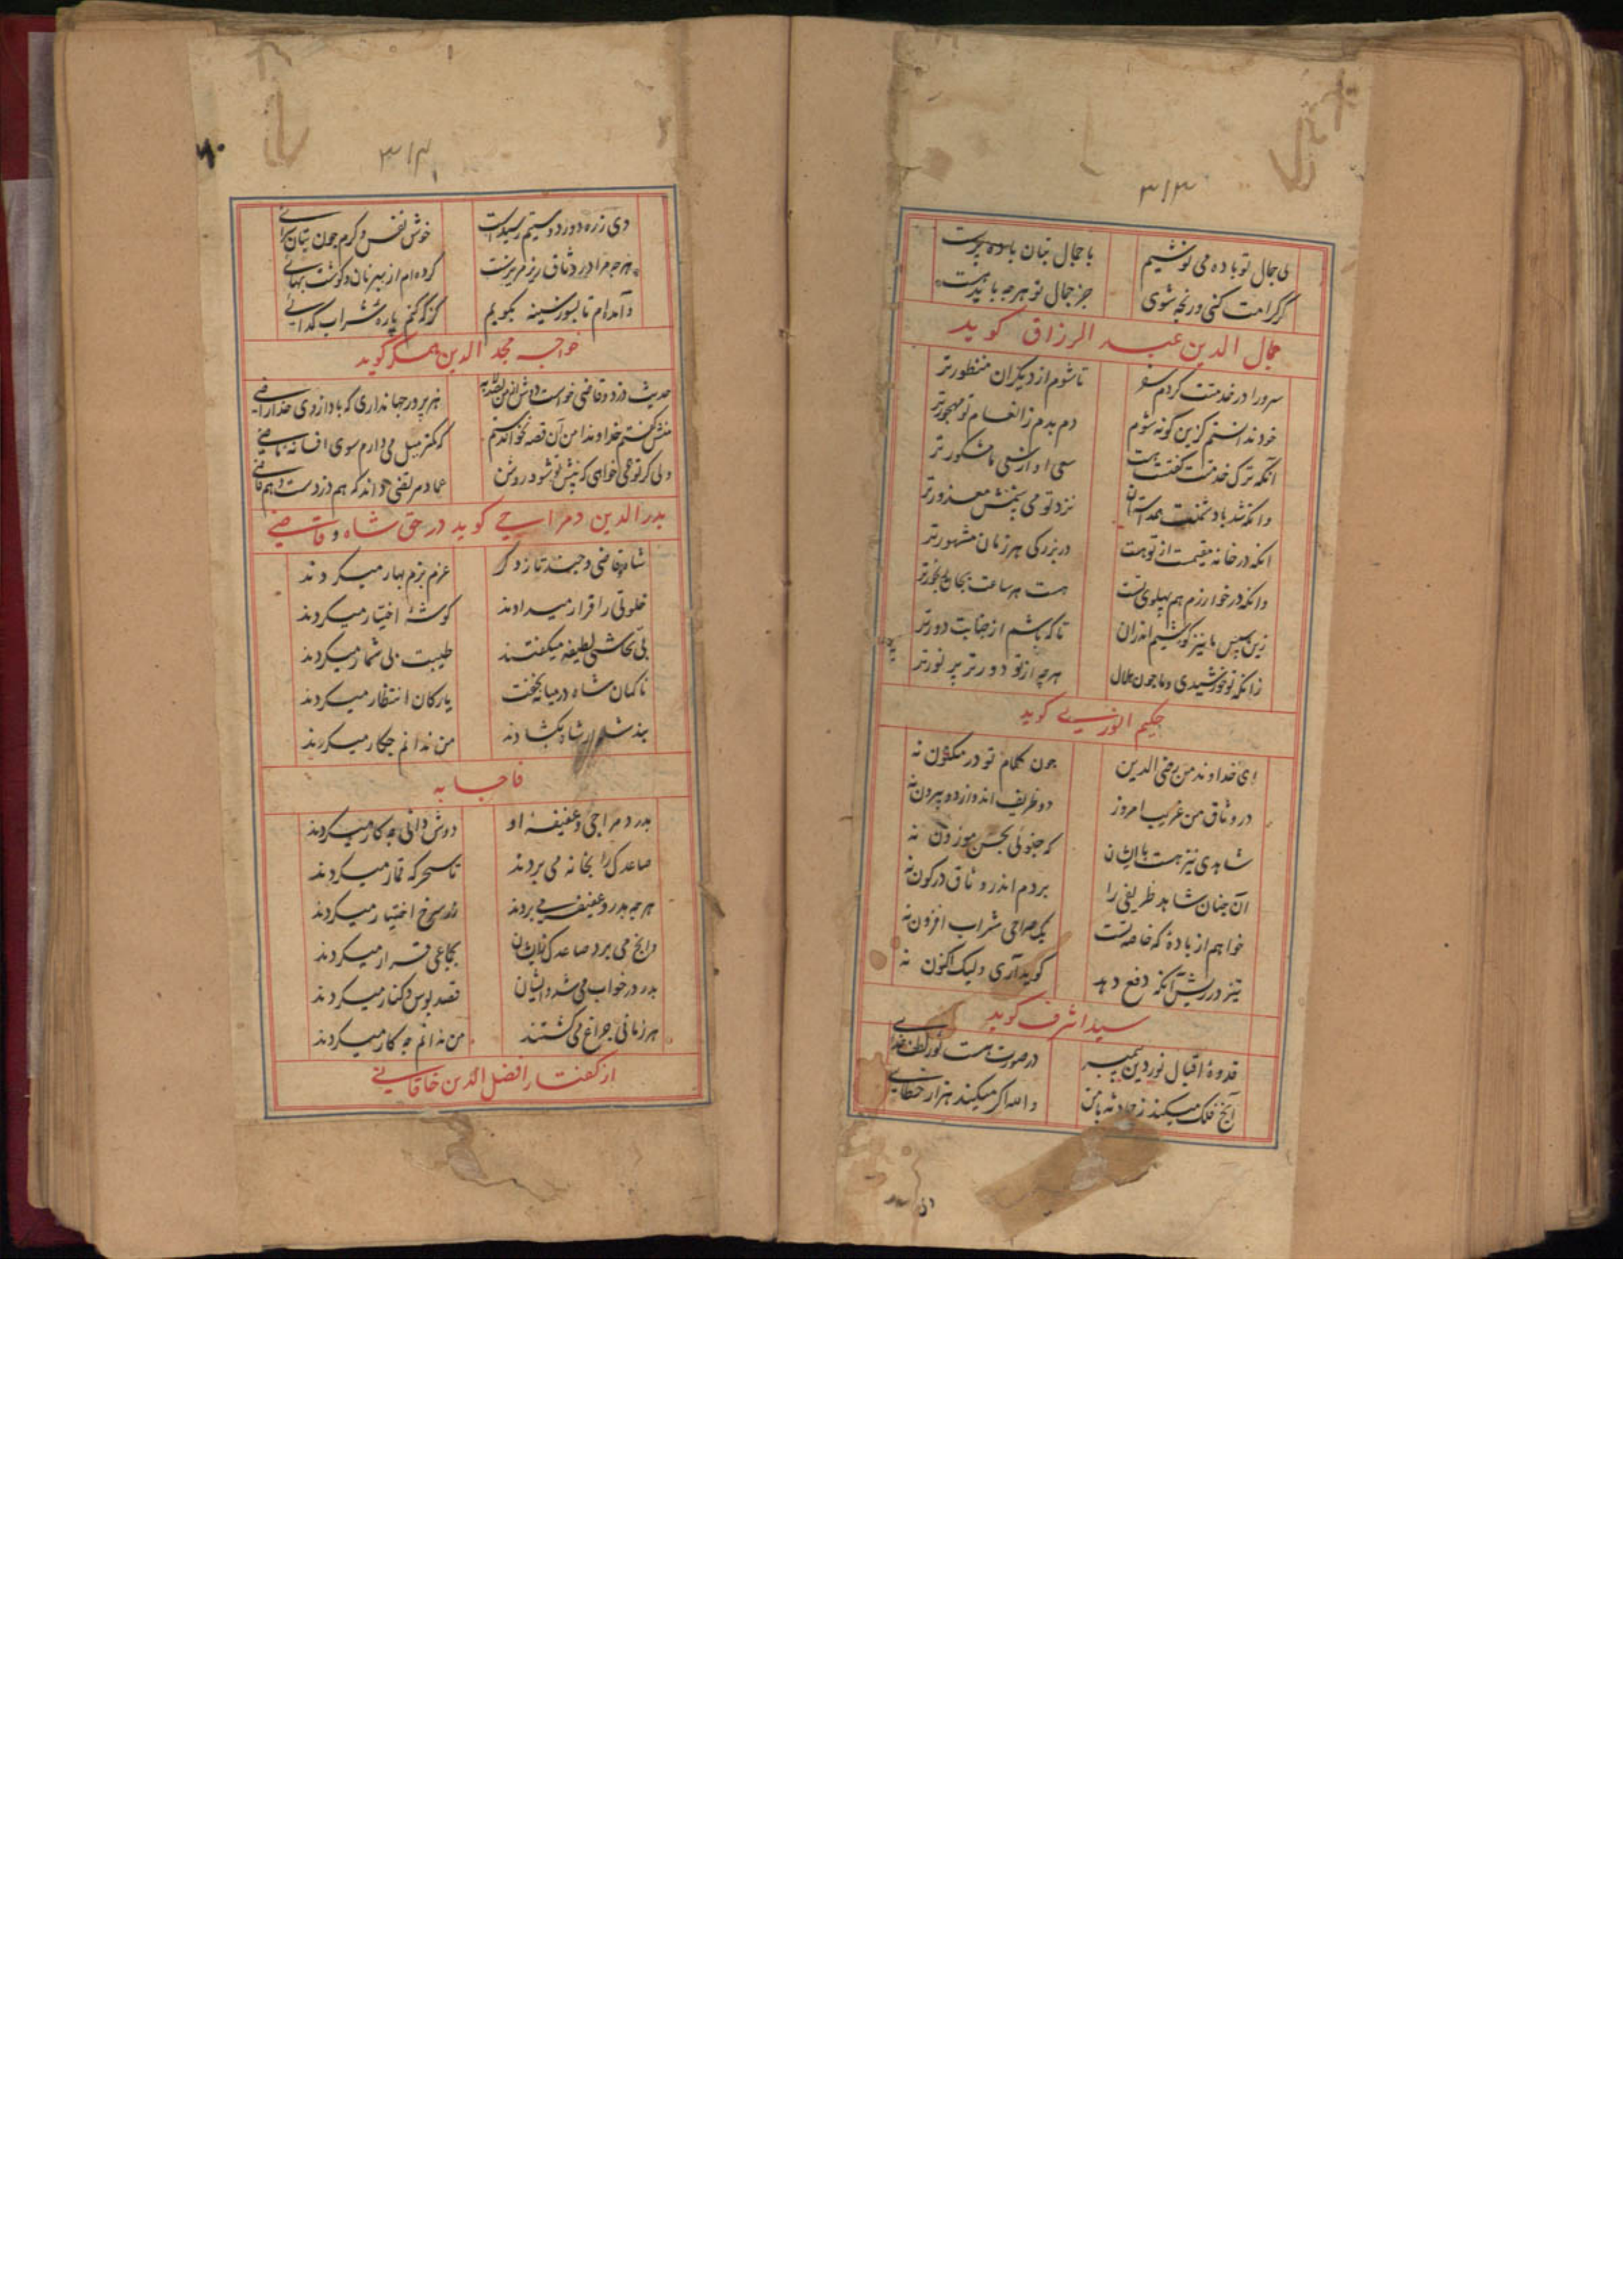 ۳۱۳
بی جمال تو باده می نوشیم با جمال بتان باده پرست
گر کرامت کنی و رنجه شوی جز جمال تو هر چه باید هست
جمال الدین عبد الرزاق کوید
سرورا در خدمتت کردم سفر تا شوم از دیکران منظورتر
خود ندانستم کزین کونه شوم دم بدم ز انعام تو مهجورتر
آنکه ترک خدمتت کفتست هست سعی او از سعی ما مشکورتر
وانکه شد با دشمنت همداستان نزد تو می بینمش معذورتر
انکه در خانه مقیمست از تو هست در بزرکی هر زمان مشهورتر
وانکه در خوارزم هم پهلوی تست هست هر ساعت
زین سپس ما نیز کوشیم اندران تا که باشیم از جنابت دورتر
زانکه تو خورشیدی و ما چون هلال هر چه از تو دورتر پر نورتر
حکیم انوری کوید
ای خداوند من رضی الدین چون کلام تو در مکنون نه
در وثاق من غریب امروز دو ظریف اند واز دو بیرون نه
شاهدی نیز هست با ایشان که چنوئی بحسن موزون نه
آن چنان شاهد ظریفی را بردم اندر وثاق در کون نه
خواهم از باده که خاصه تست یک صراحی شراب افزون نه
تیز در ریش آنکه دفع دهد کوید آری ولیک اکنون نه
سید اشرف کوید
قدوۀ اقبال نور دین پیمبر در صورت هست نور لطف خدای
آنچ فلک میکند ز حادثه با من والله اکر میکند هزار خطایی
۳۱۴
دی ز ره دور دوستیم رسیدست خوش نفس و کرم چون بتان سرائی
هر چه مرا در وثاق ریزه مریزست کرده ام از بهر نان و کوشت بهائی
و آمده ام تا بسوز سینه بکویم کز که کنم پاره شراب کدائی
خواجه مجد الدین همکر کوید
حدیث دزد و قاضی خواست دوش از من هنرپرور جهانداری که باد ازوی خدا راضی
منش کفتم خداوندا من آن قصه نخواندستم که کمتر میل می دارم سوی افسانۀ ماضی
ولی کر تو همی خواهی که پیش تو شود روشن عماد مرتضی داند که هم دزدست و هم قاضی
بدر الدین دمراجی کوید در حق شاه و قاضی
شاه و قاضی و جند تا زد کر عزم بزم بهار میکردند
خلوتی را قرار میدادند کوشۀ اختیار میکردند
بی تحاشی لطیفه میکفتند طیبت بی شمار میکردند
ناکهان شاه در میانه بخفت یارکان انتظار میکردند
بند شلوار شاه بکشادند من ندانم چکار میکردند
فاجابه
بدر دمراجی و عفیفۀ او دوش دانی چه کار میکردند
صاعدک را بخانه می بردند تا سحر که قمار میکردند
هر چه بدر و عفیفه می بردند زر سرخ اختیار میکردند
وانچ می برد صاعدک زایشان بجماعی قرار میکردند
بدر در خواب می شد و ایشان قصد بوس و کنار میکردند
هر زمانی چراغ می کشتند من ندانم چه کار میکردند
از کفتار افضل الدین خاقانی